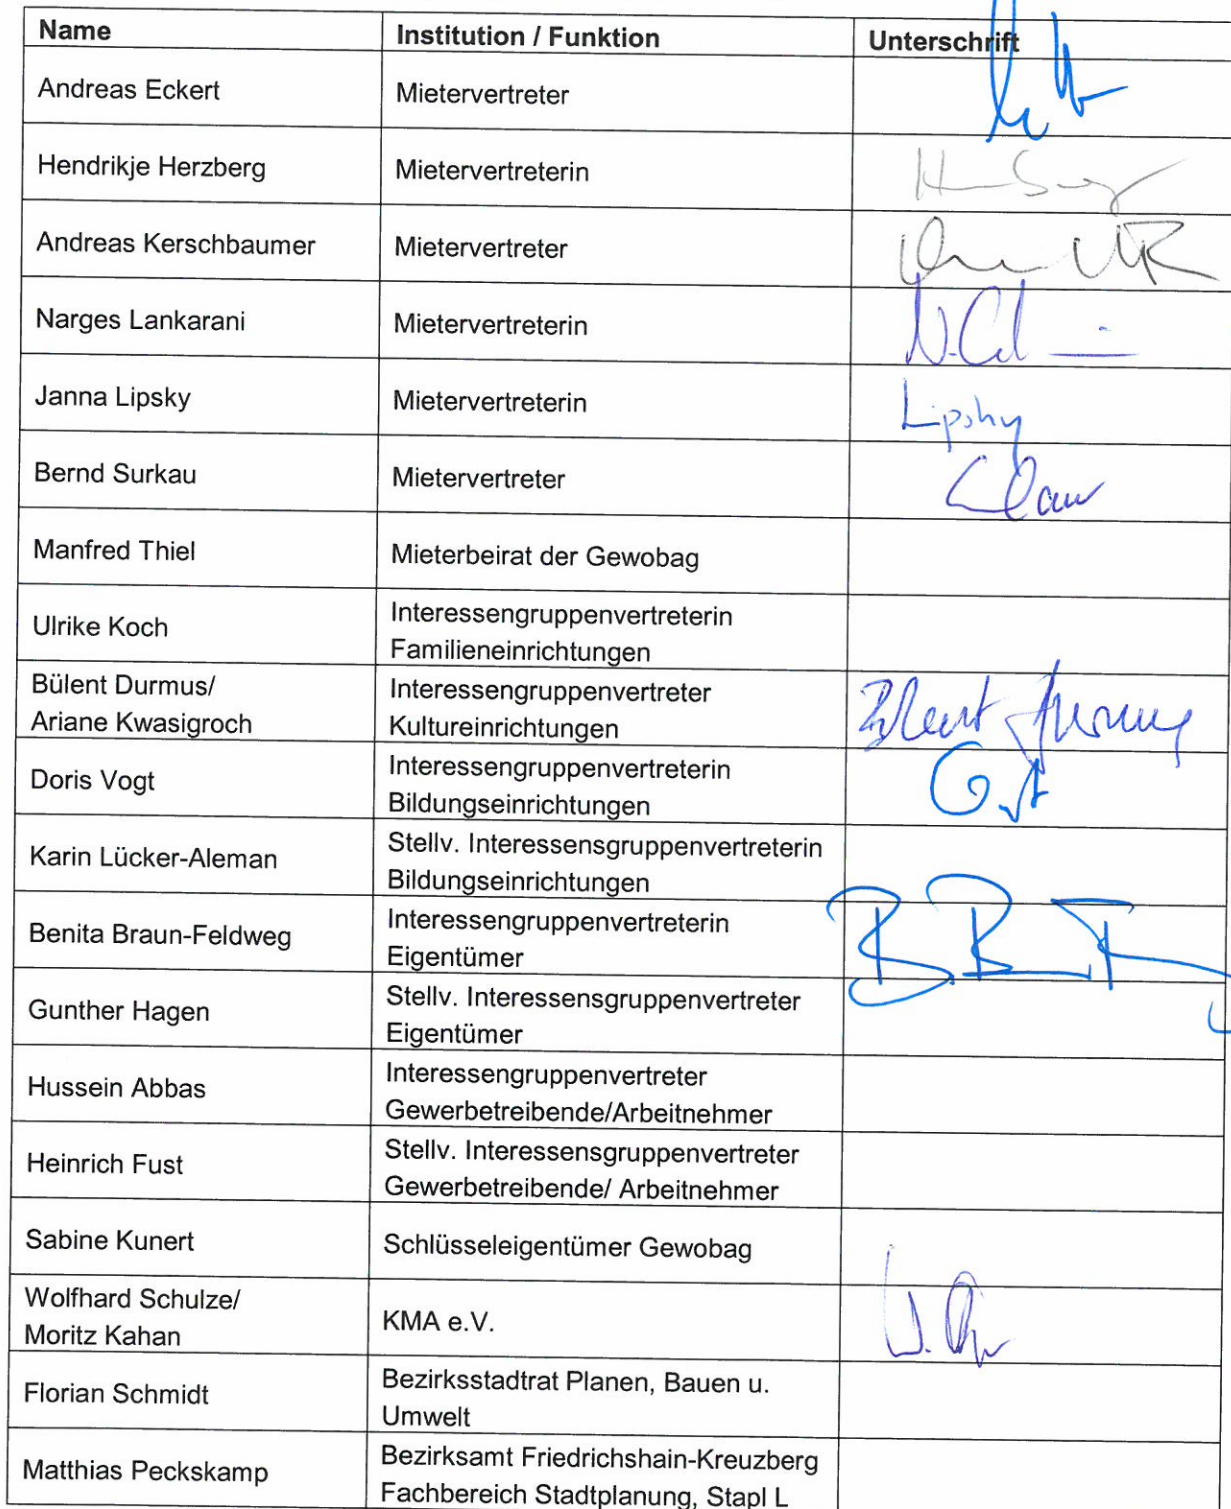 Name Institution / Funktion Unterschrift
Andreas Eckert Mietervertreter
Hendrikje Herzberg Mietervertreterin
Andreas Kerschbaumer Mietervertreter
Narges Lankarani Mietervertreterin
Janna Lipsky Mietervertreterin Lipsky
Bernd Surkau Mietervertreter
Manfred Thiel Mieterbeirat der Gewobag
Ulrike Koch Interessengruppenvertreterin
Familieneinrichtungen
Bülent Durmus/ Interessengruppenvertreter
Ariane Kwasigroch Kultureinrichtungen
Doris Vogt Interessengruppenvertreterin
Bildungseinrichtungen
Karin Lücker-Aleman Stellv. Interessensgruppenvertreterin
Bildungseinrichtungen
Benita Braun-Feldweg Interessengruppenvertreterin
Eigentümer
Gunther Hagen Stellv. Interessensgruppenvertreter
Eigentümer
Hussein Abbas Interessengruppenvertreter
Gewerbetreibende/Arbeitnehmer
Heinrich Fust Stellv. Interessensgruppenvertreter
Gewerbetreibende/ Arbeitnehmer
Sabine Kunert Schlüsseleigentümer Gewobag
Wolfhard Schulze/
Moritz Kahan KMA e.V.
Florian Schmidt Bezirksstadtrat Planen, Bauen u.
Umwelt
Matthias Peckskamp Bezirksamt Friedrichshain-Kreuzberg
Fachbereich Stadtplanung, Stapl L